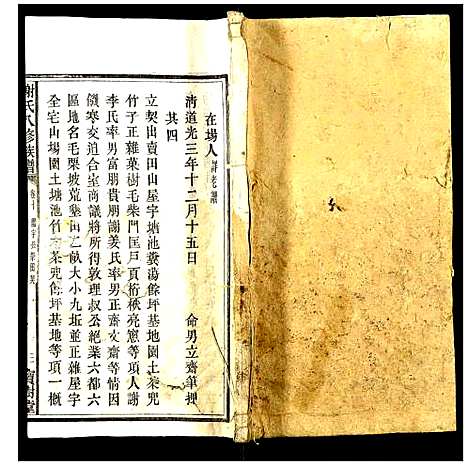 在場人
清道光三年十二月十五日 命男立齋筆押
其四
立契出賣田山屋宇塘池黄蕩餘坪基地園土茶兜
竹子正雜菓樹毛柴門匡戶頁椅秧亮窻等項人謝
李氏率男富朋貴朋謝姜氏率男正齋文齋等情因
饑寒交迫合室商議將所得敦理叔公絶業六都六
區地名毛栗坡荒墾田乙畝大小九坵並正雜屋宇
全宅山場園土塘池名木茶兜餘坪基地等項一概
謝氏八修族譜